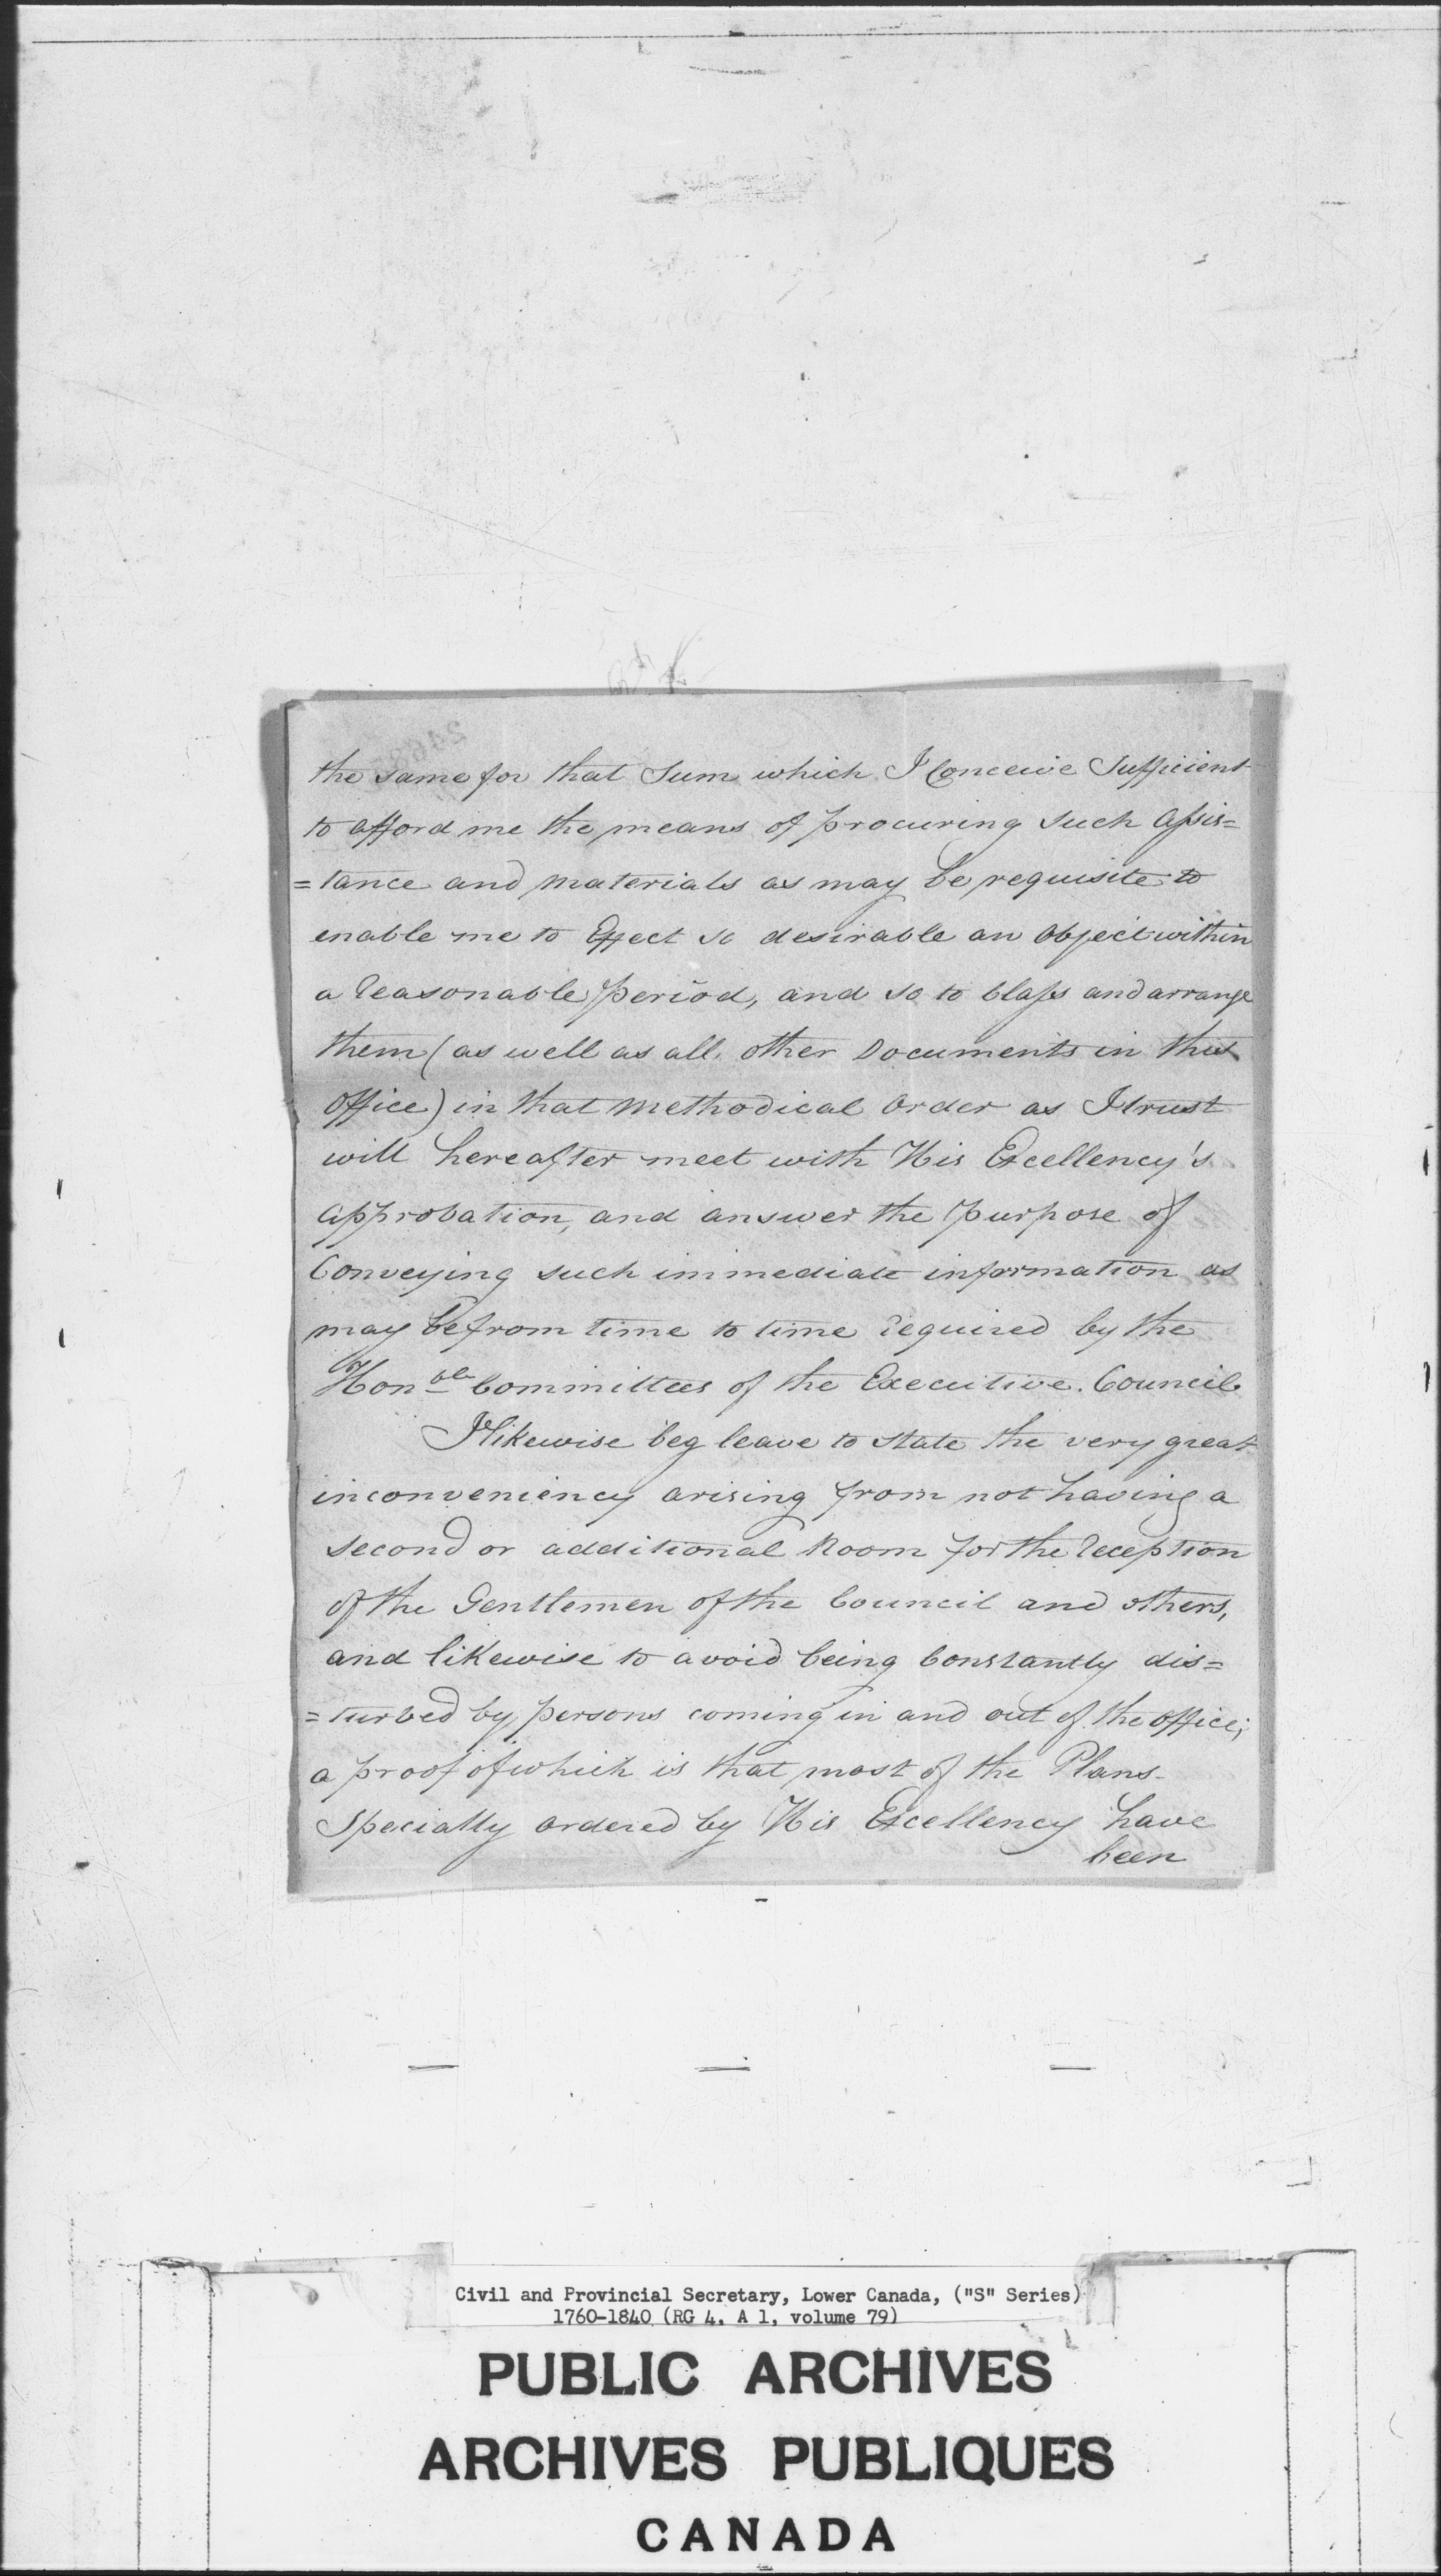 the same for that Sum which I Conceive Sufficient
to afford me the means of procuring such Assis=
=tance and materials as may be requisite to
enable me to Effect so desirable an Object within
a reasonable period, and so to Class and arrange
them (as well as all other Documents in this
Office) in that Methodical Order as I trust
will hereafter meet with His Excellency's
approbation, and answer the purpose of
Conveying such immediate information as
may be from time to time required by the
Honble Committees of the Executive Council
I likewise beg leave to state the very great
inconveniency arising from not having a
second or additional Room for the reception
of the Gentlemen of the Council and others,
and likewise to avoid being Constantly dis=
=turbed by persons coming in and out of the Office;
a proof of which is that most of the Plans
Specially ordered by His Excellency have
been
Civil and Provincial Secretary, Lower Canada, ("S" Series)
1760-1840 (RG 4, A 1, volume 79)
PUBLIC ARCHIVES
ARCHIVES PUBLIQUES
CANADA